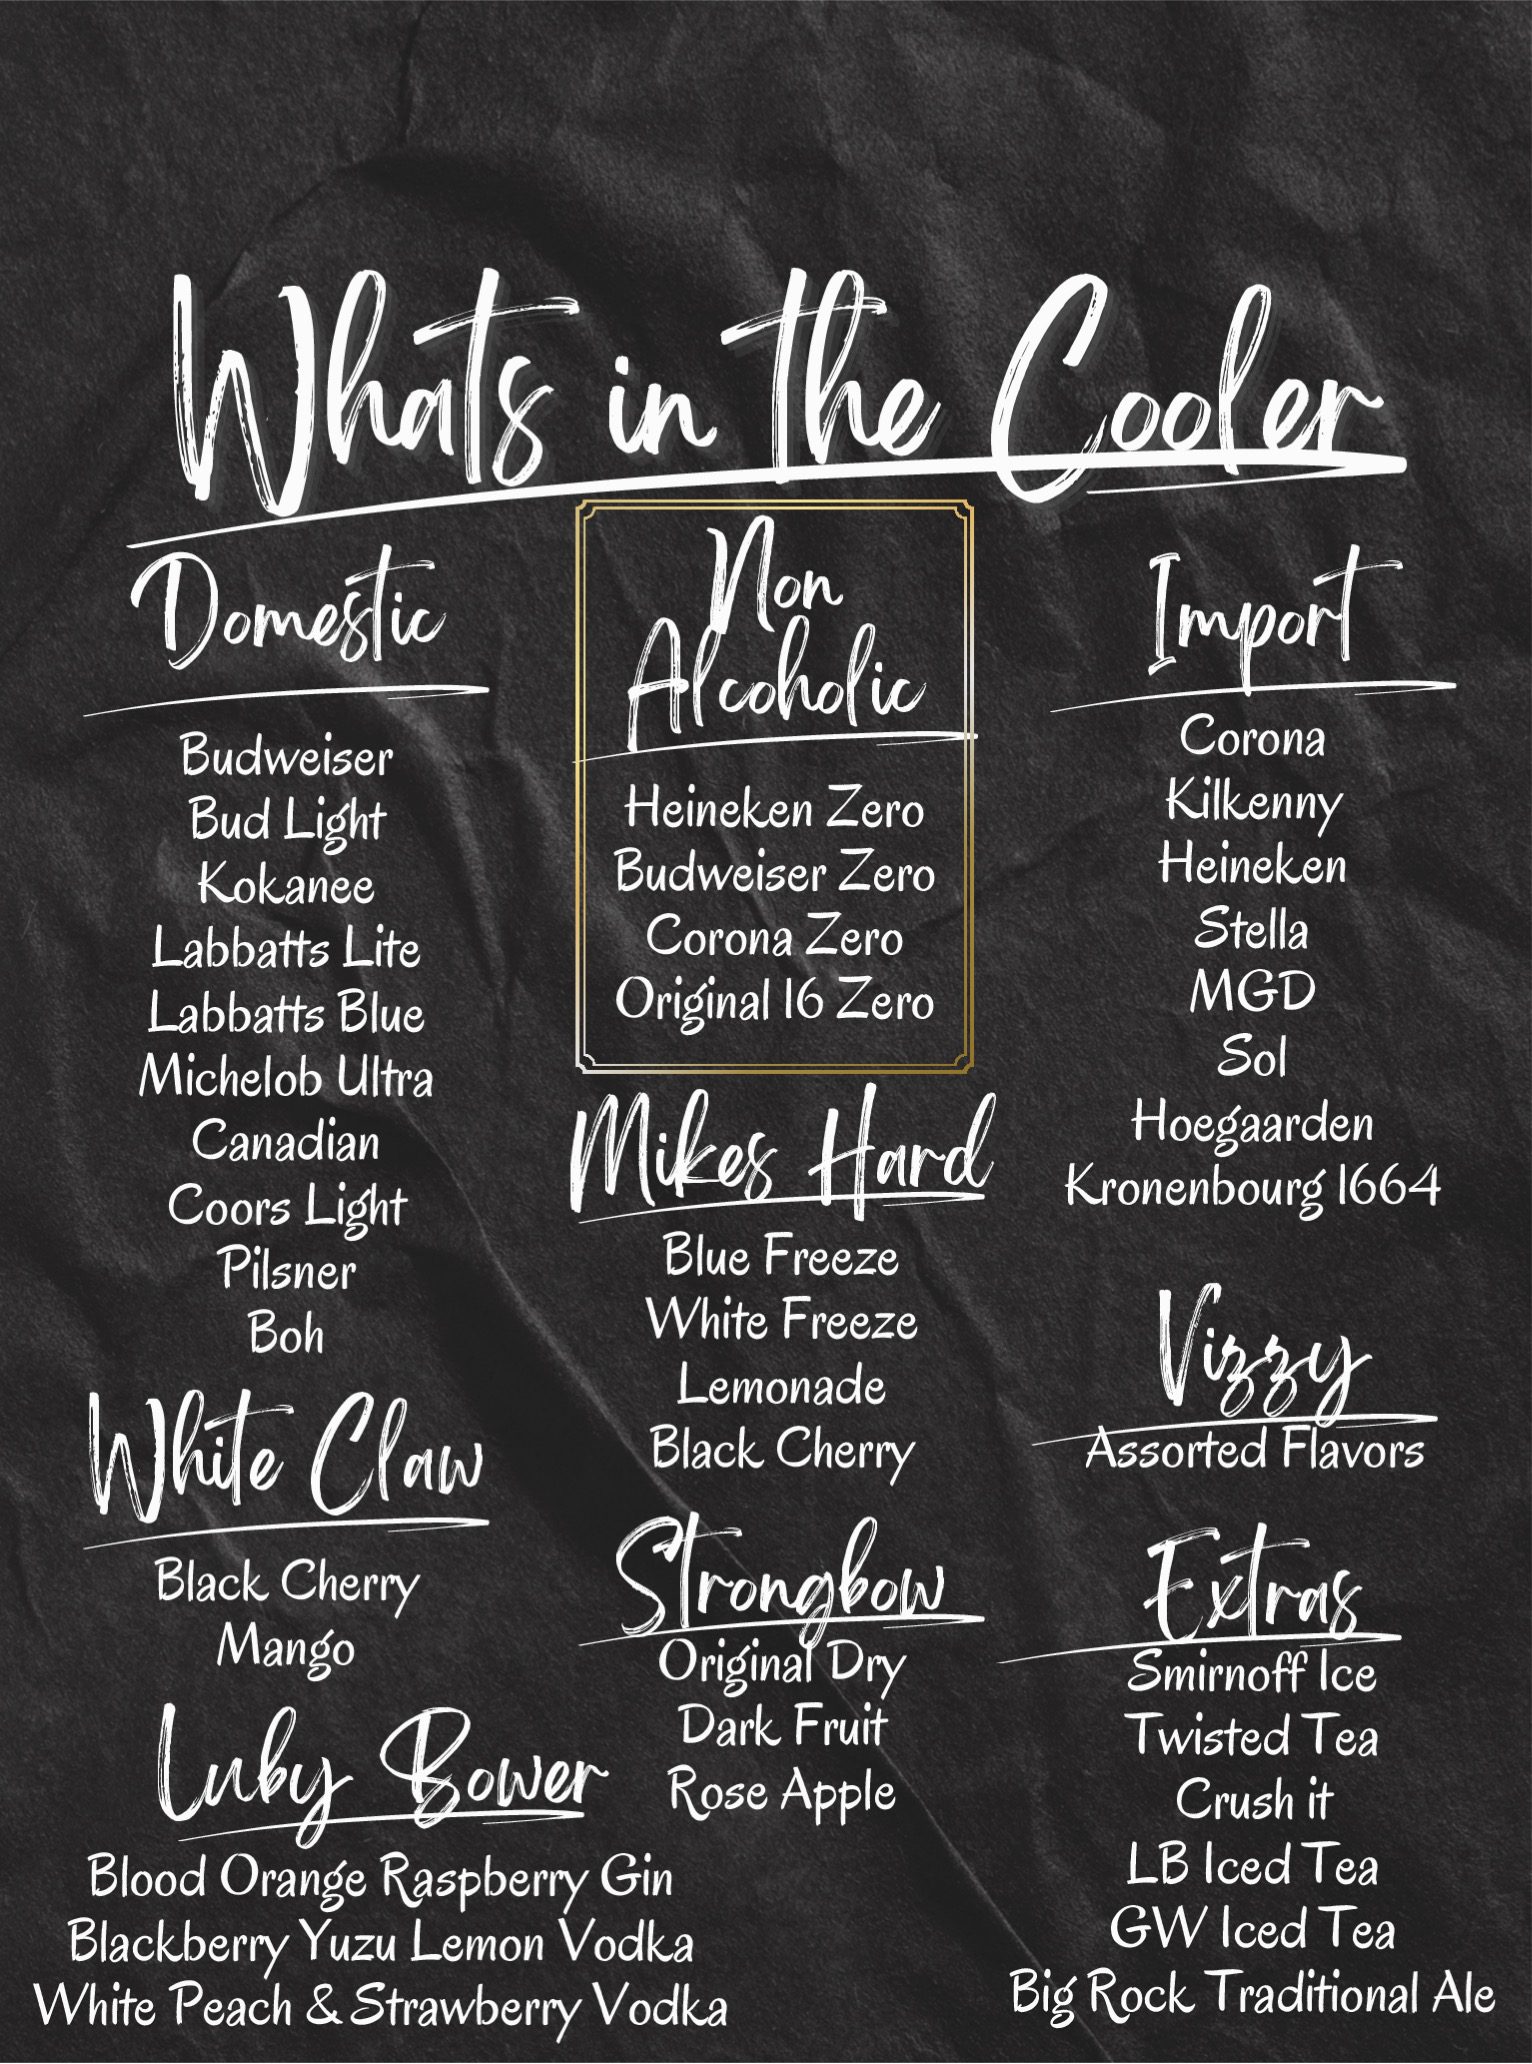 Whats in the Cooler
Domestic
Budweiser
Bud Light
Kokanee
Labbatts Lite
Labbatts Blue
Michelob Ultra
Canadian
Coors Light
Pilsner
Boh
White Claw
Black Cherry
Mango
Luby Bower
Blood Orange Raspberry Gin
Blackberry Yuzu Lemon Vodka
White Peach & Strawberry Vodka
Non
Alcoholic
Heineken Zero
Budweiser Zero
Corona Zero
Original 16 Zero
Mikes Hard
Blue Freeze
White Freeze
Lemonade
Black Cherry
Strongbow
Original Dry
Dark Fruit
Rose Apple
Import
Corona
Kilkenny
Heineken
Stella
MGD
Sol
Hoegaarden
Kronenbourg 1664
Vizzy
Assorted Flavors
Extras
Smirnoff Ice
Twisted Tea
Crush it
LB Iced Tea
GW Iced Tea
Big Rock Traditional Ale